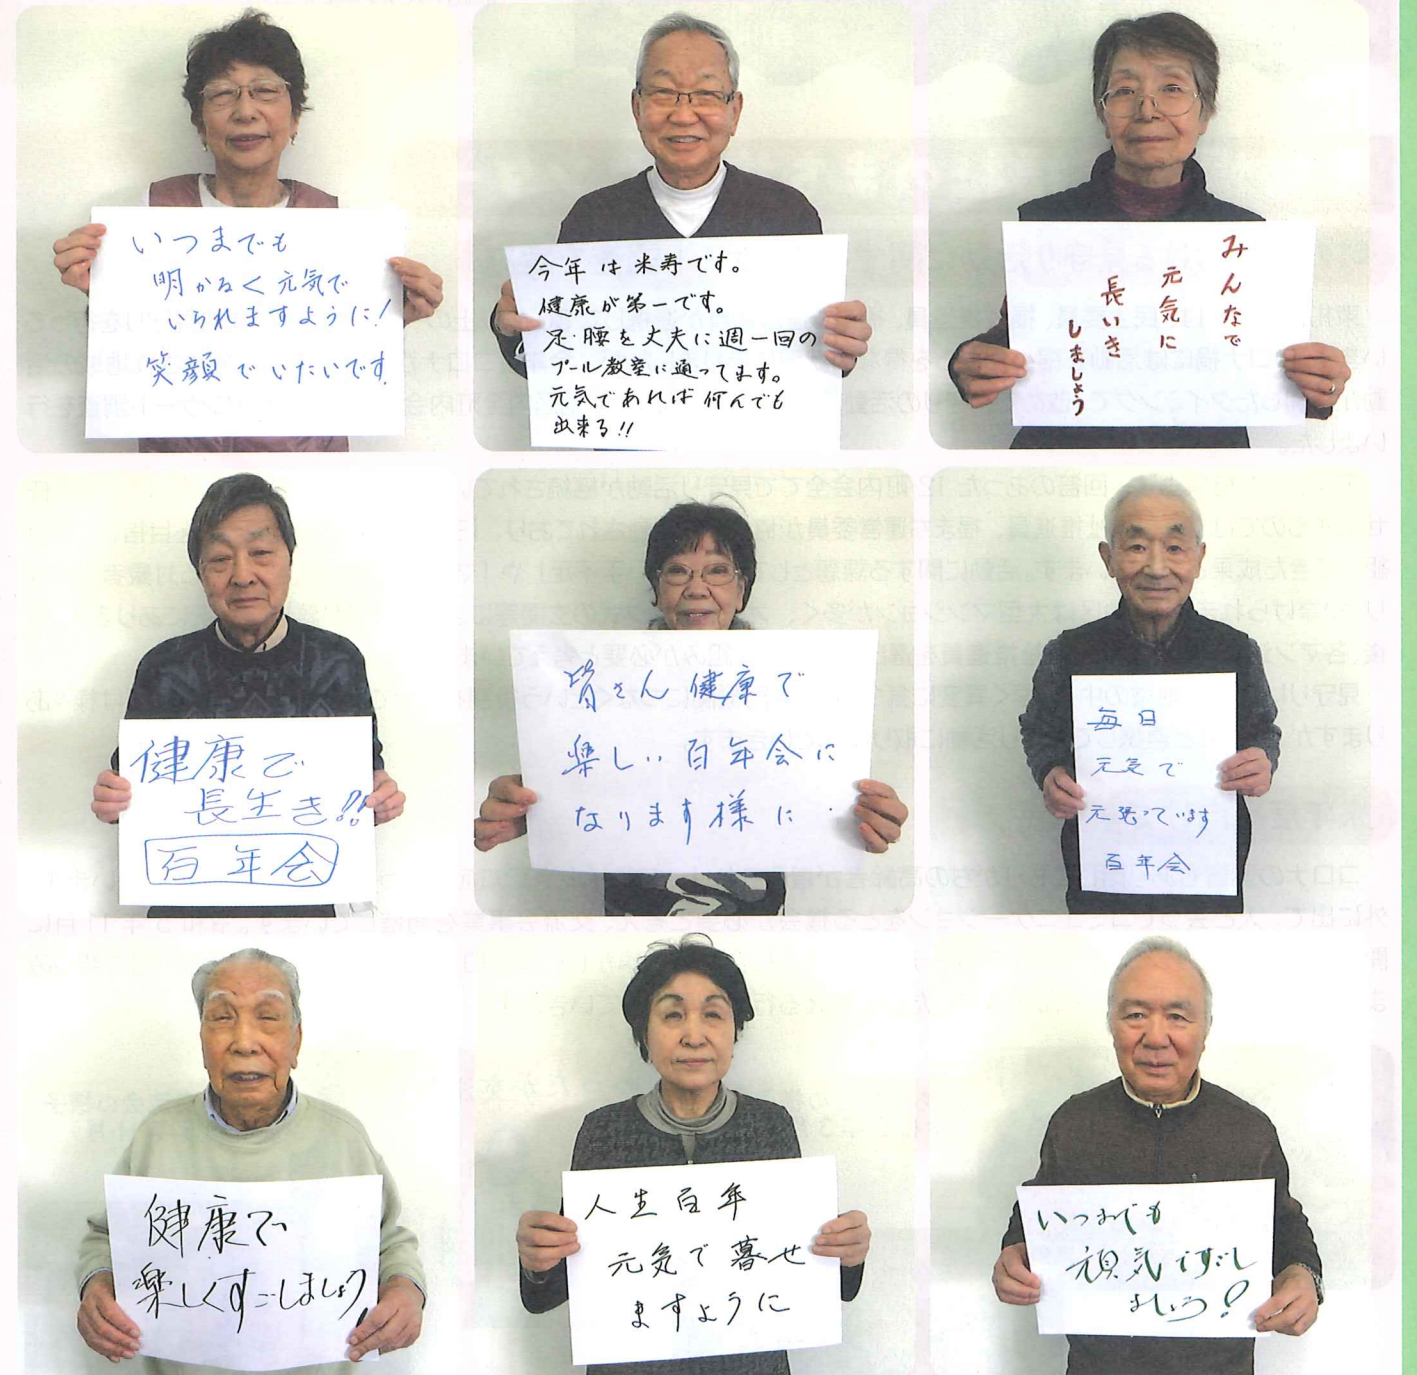 いつまでも
明かるく元気で
いられますように!
笑顔でいたいです
今年は米寿です。
健康が第一です。
足・腰を丈夫に週一回の
プール教室に通ってます。
元気であれば何んでも
出来る!!
みんなで
元気に
長いき
しましょう
健康で
長生き!!
百年会
皆さん健康で
楽しい百年会に
なります様に.
毎日
元気で
元張っています
百年会
健康で
楽しくすごしましょう
人生百年
元気で暮せ
ますように
いつまでも
気ですごし
ましょう!